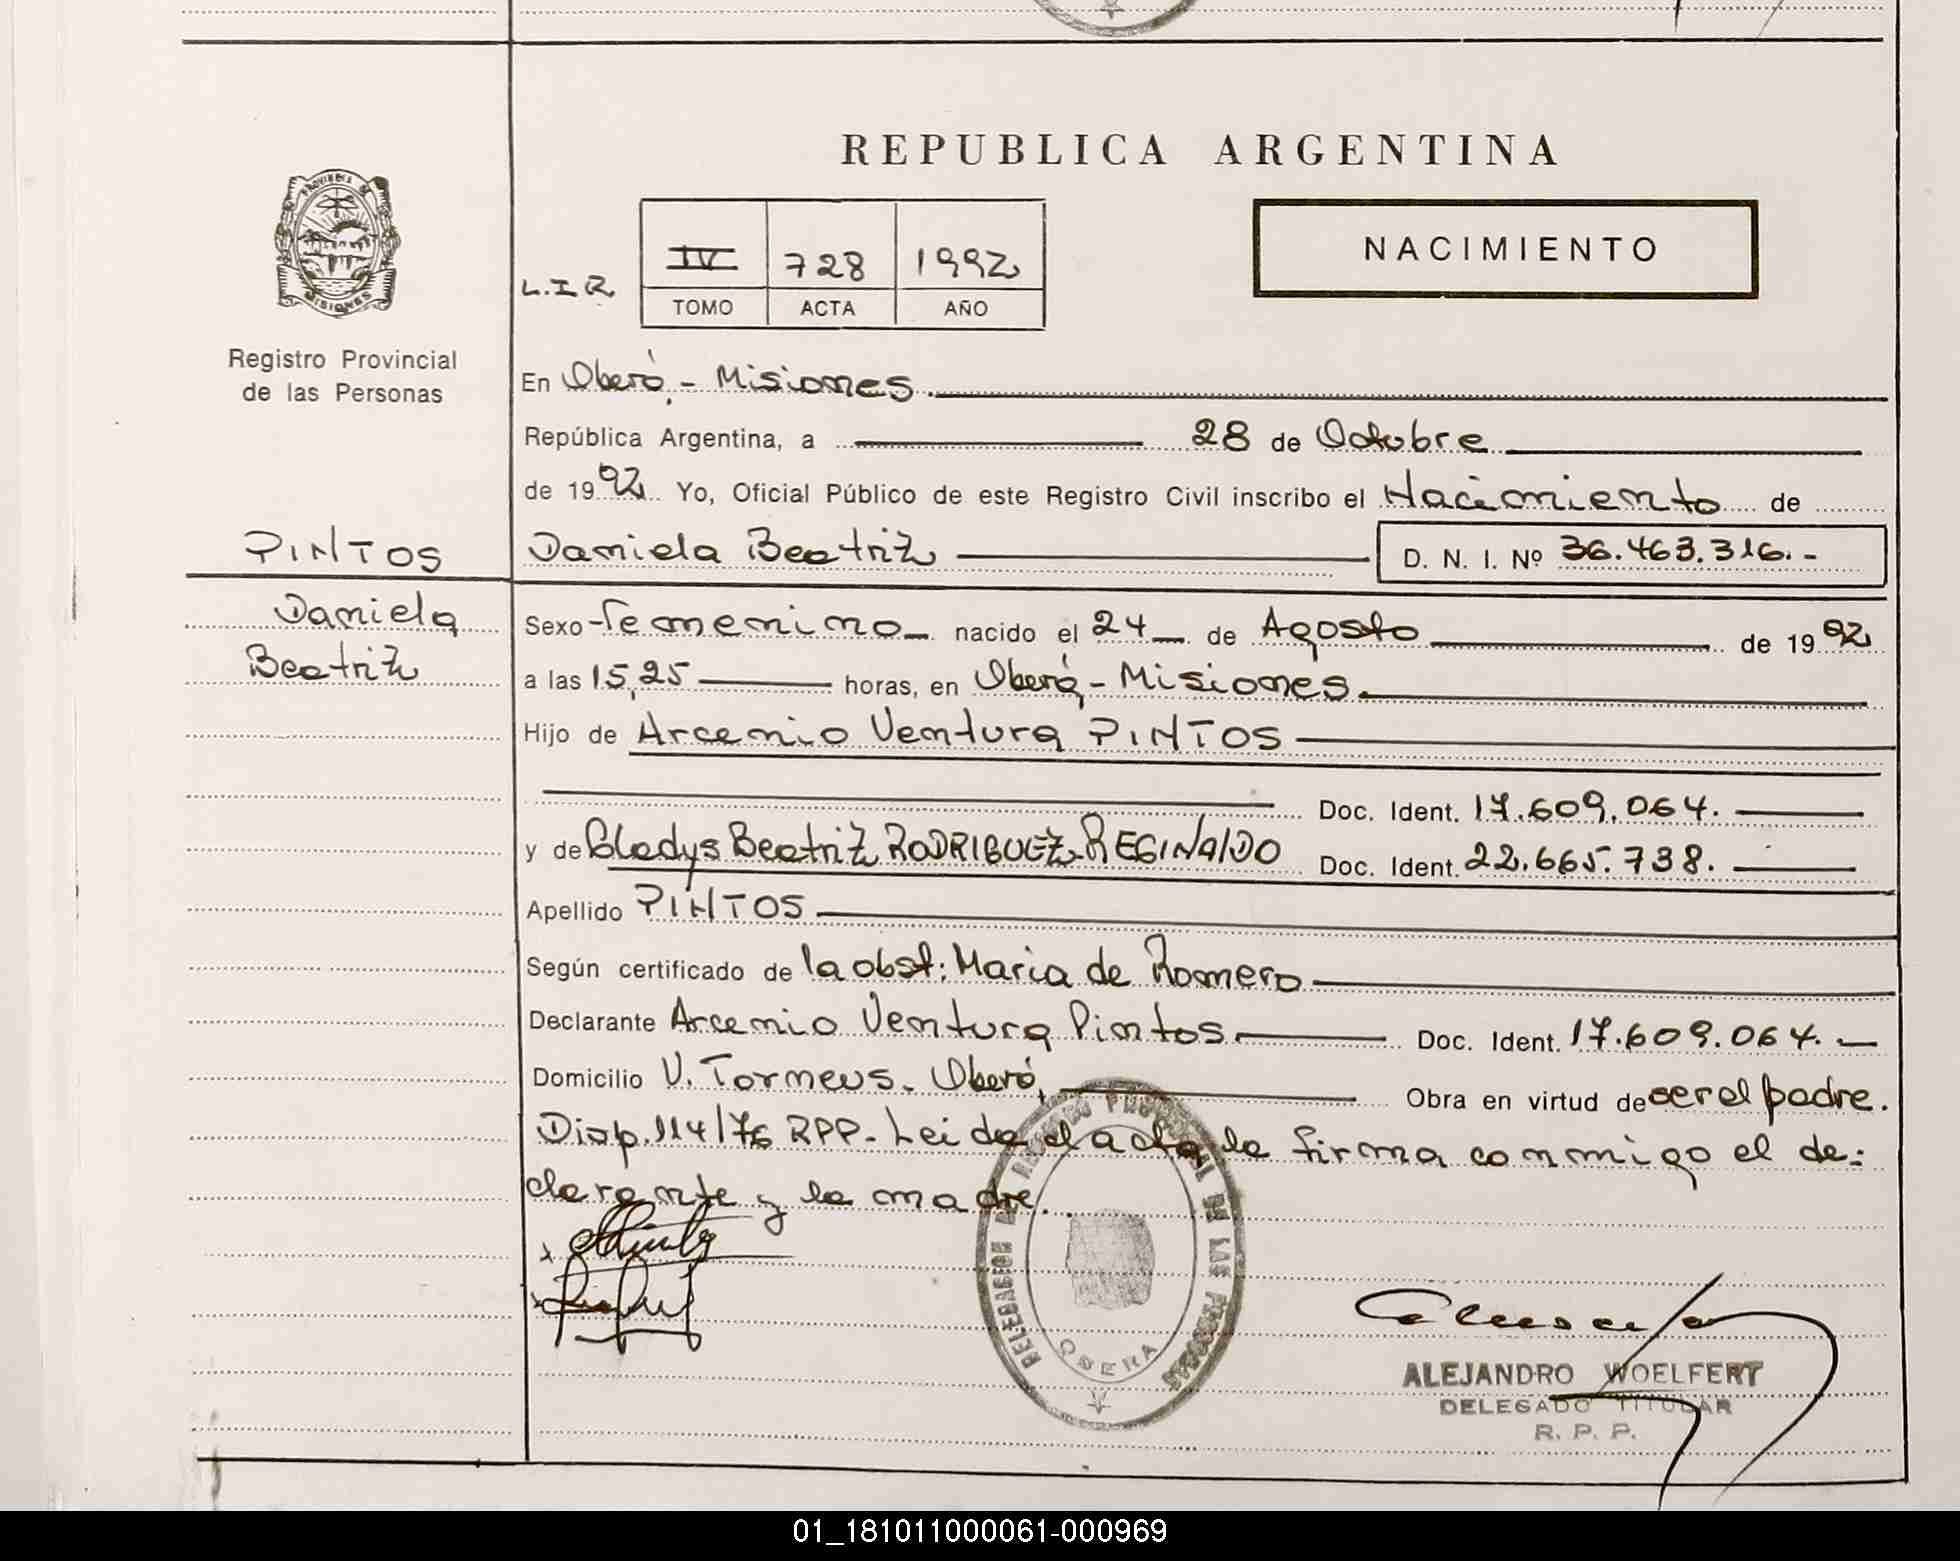 REPUBLICA ARGENTINA
PROVINCIA DE MISIONES
L.I.R.
IV 728 1992
TOMO ACTA AÑO
NACIMIENTO
Registro Provincial
de las Personas
En Oberá, - Misiones
República Argentina, a 28 de Octubre
de 1992 Yo, Oficial Público de este Registro Civil inscribo el Nacimiento de
PINTOS
Daniela Beatriz D. N. I. Nº 36.463.316.-
Daniela
Beatriz
Sexo Femenino nacido el 24 de Agosto de 1992
a las 15,25 horas, en Oberá, - Misiones.
Hijo de Arcenio Ventura PINTOS
Doc. Ident. 17.609.064.
y de Gladys Beatriz RODRIGUEZ REGINALDO Doc. Ident. 22.665.738.
Apellido PINTOS
Según certificado de la obst: Maria de Romero
Declarante Arcenio Ventura Pintos Doc. Ident. 17.609.064.
Domicilio V. Torneus. Oberá, Obra en virtud de ser el padre.
Disp. 114/76 RPP. Leida el acta la firma conmigo el de:
clarante y la madre.
DELEGACION DEL REGISTRO PROVINCIAL DE LAS PERSONAS
OBERA
ALEJANDRO WOELFERT
DELEGADO TITULAR
R. P. P.
01_181011000061-000969